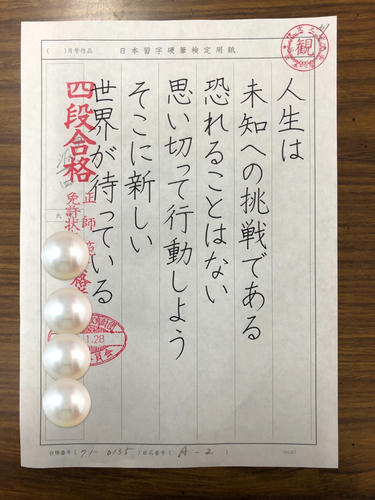 ( )月号作品 日本習字硬筆検定用紙
観
人生は
未知への挑戦である
恐れることはない
思い切って行動しよう
そこに新しい
世界が待っている
四段合格
正師
免許状
1.28
合格番号(71-0135)段名番号(A-2)